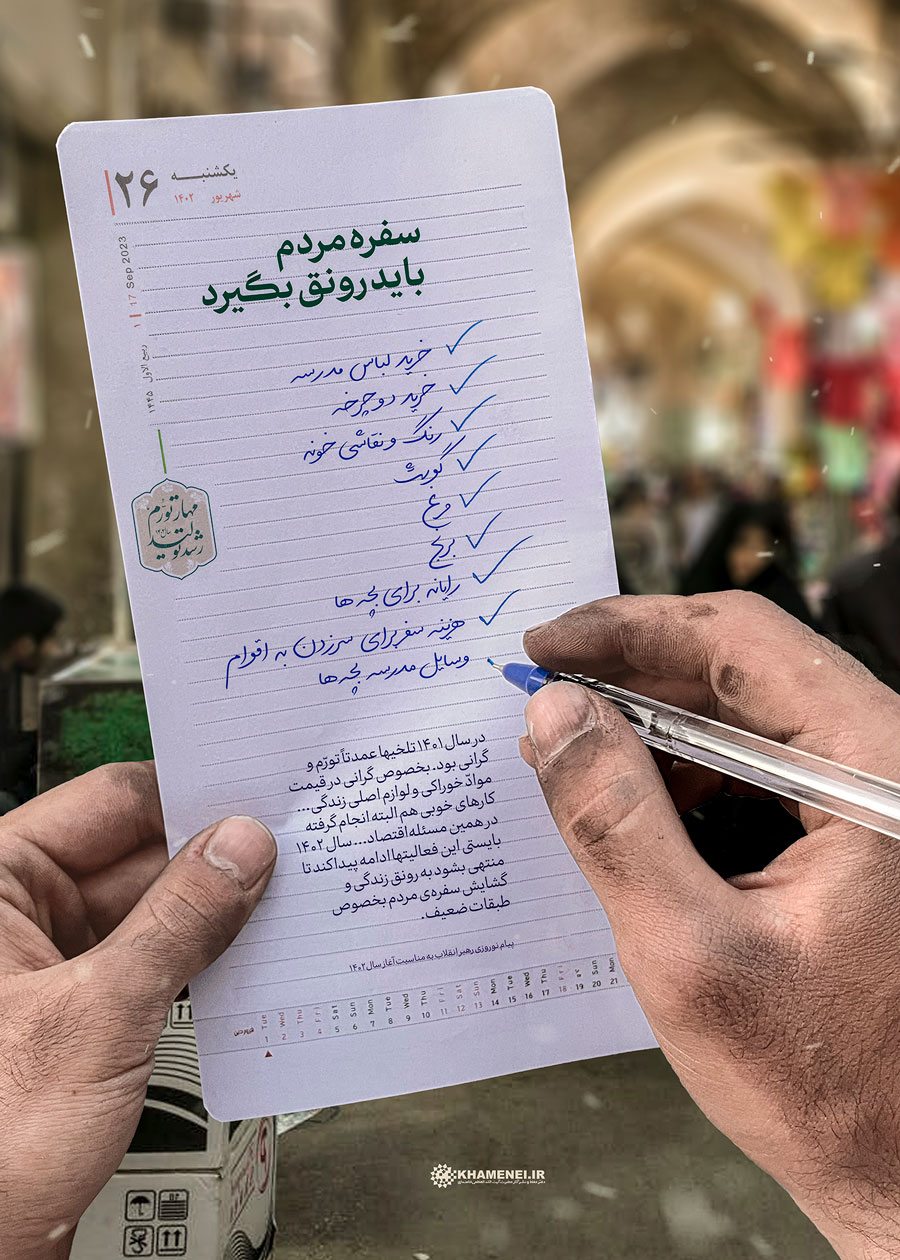 یکشنبه
۲۶
شهریور ۱۴۰۲
17 Sep 2023
۱ ربیع الاول ۱۴۴۵
سفره مردم
باید رونق بگیرد
خرید لباس مدرسه
خرید دوچرخه
رنگ و نقاشی خونه
گوشت
مرغ
برنج
رایانه برای بچه ها
هزینه سفر برای سرزدن به اقوام
وسایل مدرسه بچه ها
مهار تورم
رشد تولید
در سال ۱۴۰۱ تلخیها عمدتاً تورّم و
گرانی بود. بخصوص گرانی در قیمت
موادّ خوراکی و لوازم اصلی زندگی...
کارهای خوبی هم البته انجام گرفته
در همین مسئله اقتصاد... سال ۱۴۰۲
بایستی این فعالیتها ادامه پیدا کند تا
منتهی بشود به رونق زندگی و
گشایش سفره‌ی مردم بخصوص
طبقات ضعیف.
پیام نوروزی رهبر انقلاب به مناسبت آغاز سال ۱۴۰۲
فروردین
Tue Wed Thu Fri Sat Sun Mon Tue Wed Thu Fri Sat Sun Mon Tue Wed Thu Fri Sun Mon
1 2 3 4 5 6 7 8 9 10 11 12 13 14 15 16 17 18 19 20 21
KHAMENEI.IR